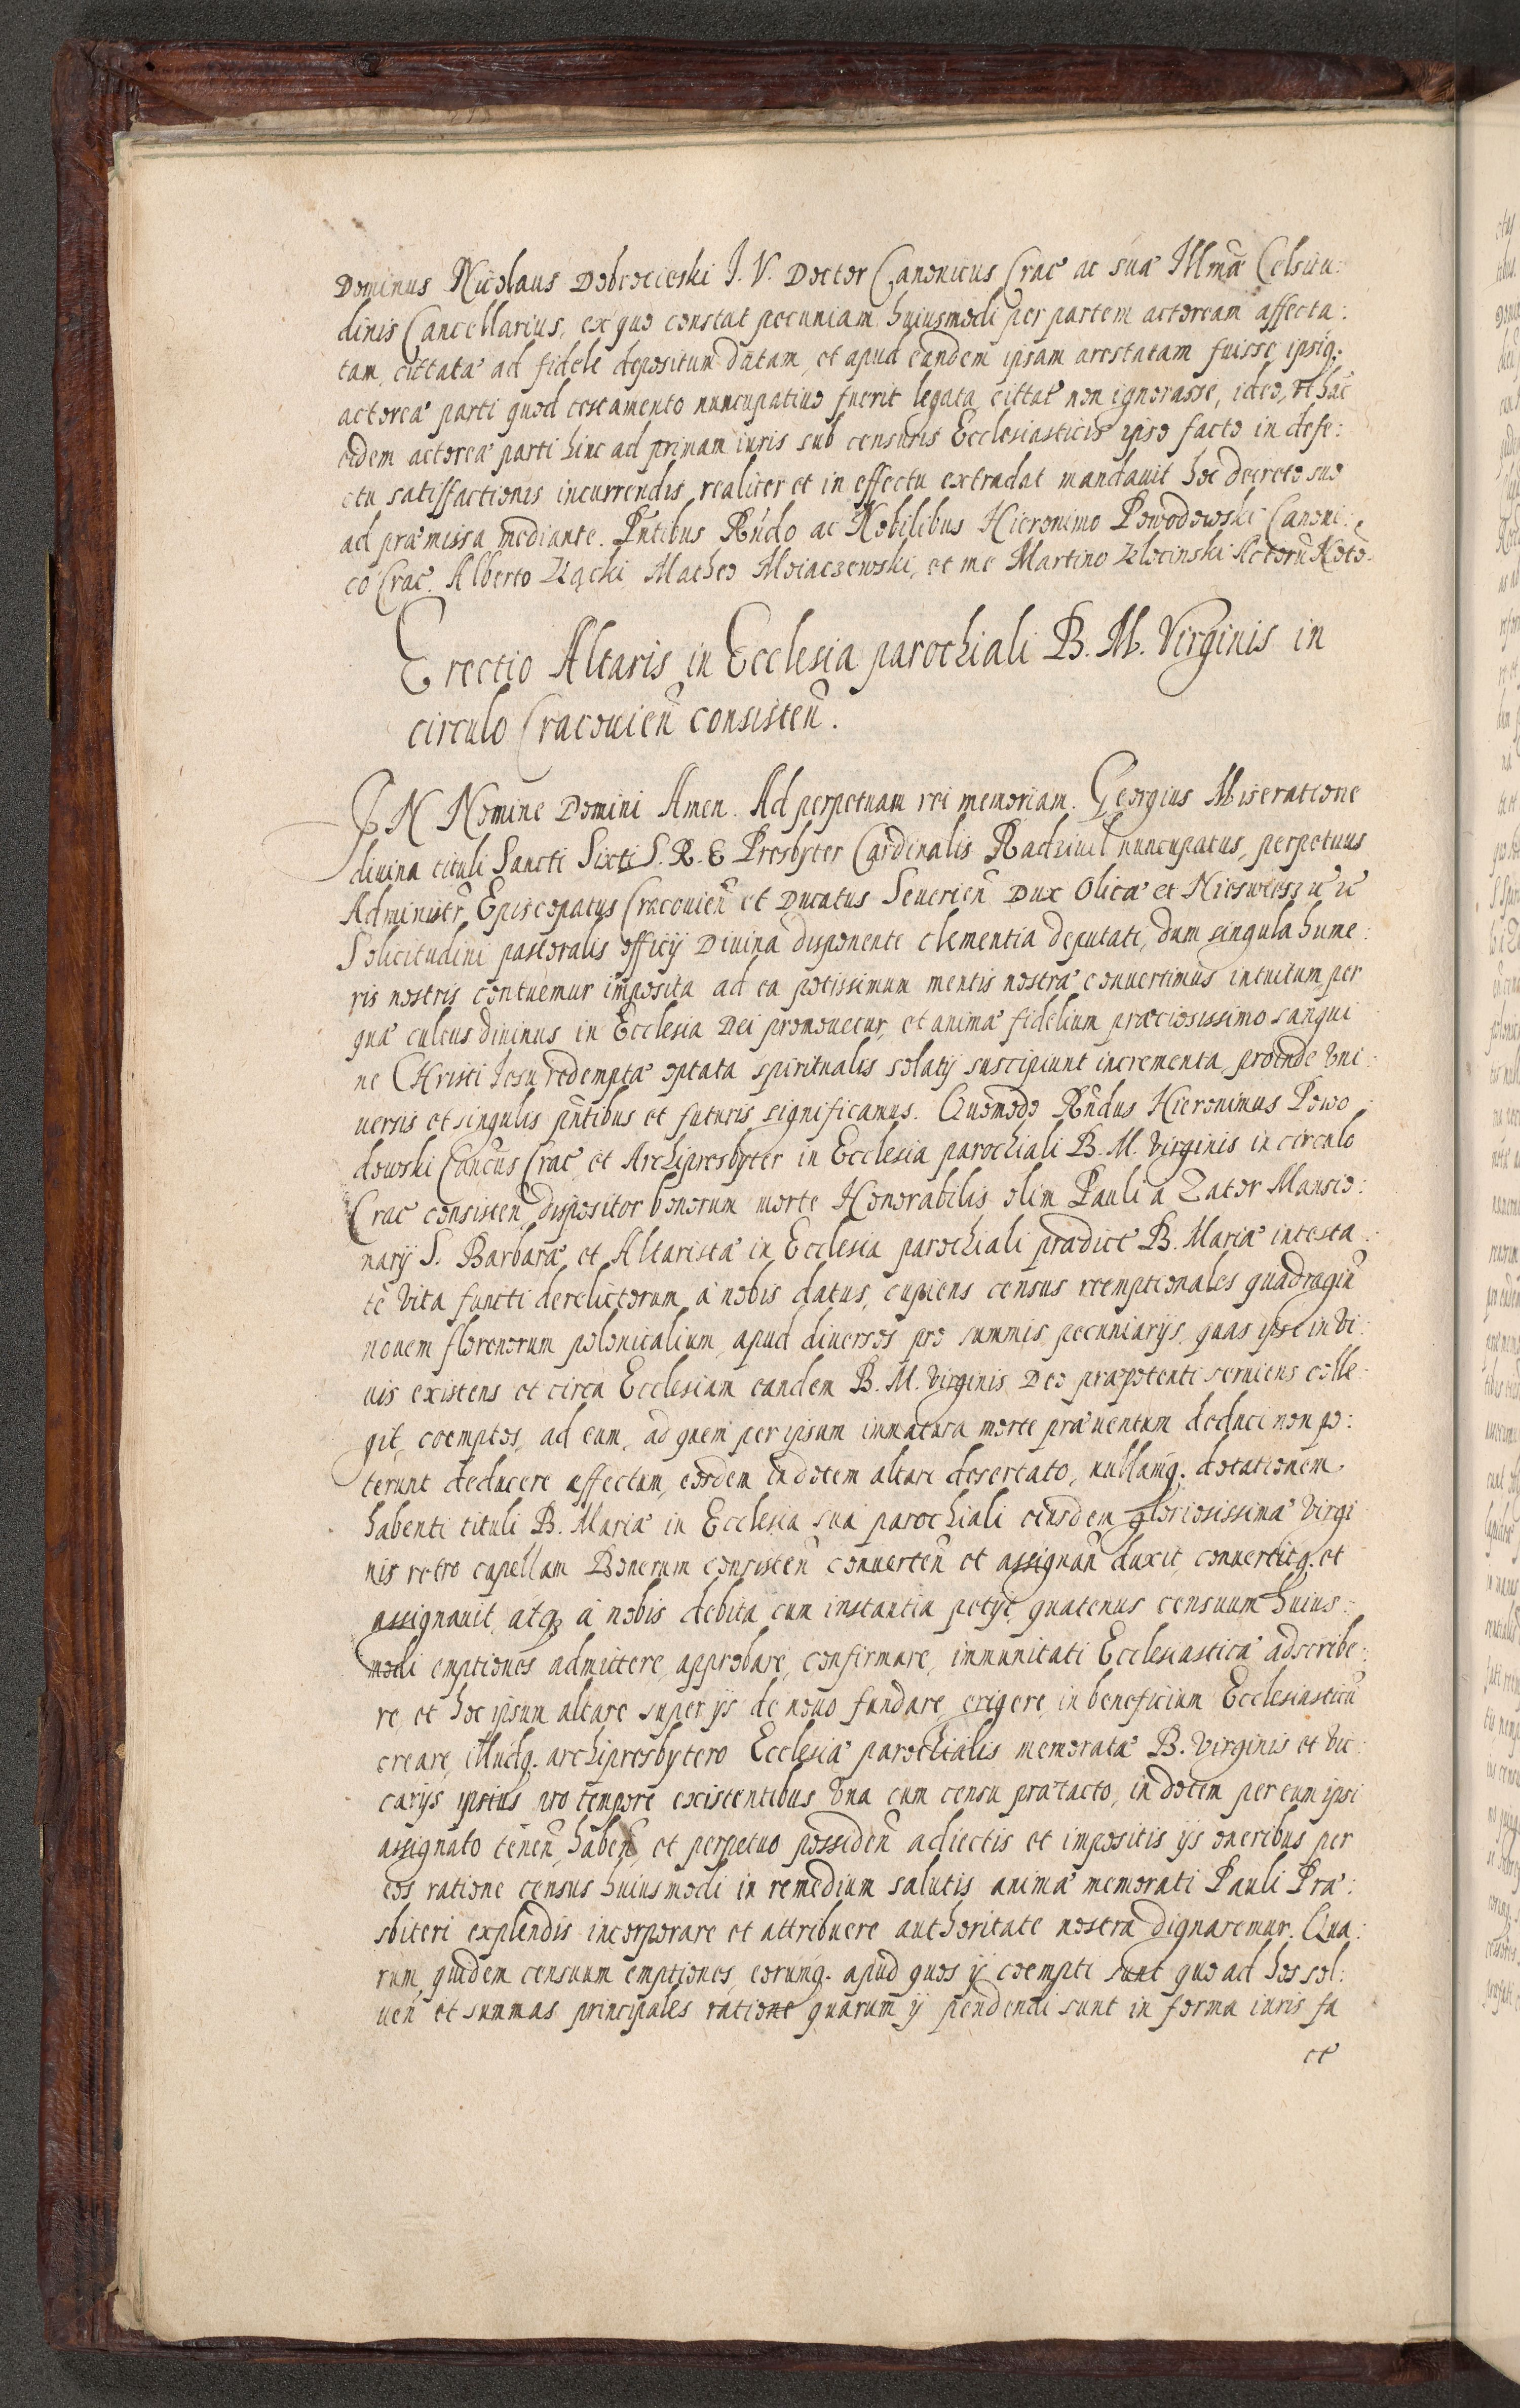 Dominus Nicolaus Dobrocieski I. V. Doctor Canonicus Crac̃ ac suæ Illmæ Celsitu:
dinis Cancellarius, ex quo constat pecuniam huiusmodi per partem actoream affecta:
tam, cittatæ ad fidele depositum datam, et apud eandem ipsam arestatam fuisse, ipsiq;
actoreæ parti quod testamento nuncupatiuo fuerit legata cittat̃ non ignorasse, ideo, vt hac̃
eidem actoreæ parti hinc ad primam iuris sub censuris Ecclesiasticis ipso facto in defe:
ctu satisfactionis incurrendis realiter et in effectu extradat mandauit hoc decreto suo
ad præmissa mediante. Pñtibus Rñdo ac Nobilibus Hieronimo Powodowski Canoni:
co Crac̃. Alberto Matheo Moiaczewski, et me Martino Zlocinski Actorũ Noto.
Erectio Altaris in Ecclesia parochiali B. M. Virginis in
circulo Cracouien̄ consisten̄.
IN Nomine Domini Amen. Ad perpetuam rei memoriam. Georgius Miseratione
diuina tituli Sancti Sixti S. R. E Presbyter Cardinalis Radziuil nuncupatus, perpetuus
Administr̃ Episcopatus Cracouien̄ et Ducatus Seuerien̄ Dux Olicæ et Nieswiesz
Solicitudini pastoralis officij Diuina disponente clementia deputati, dum singula hume:
ris nostris contuemur imposita ad ea potissimum mentis nostræ conuertimus intuitum per
quæ cultus diuinus in Ecclesia Dei promouetur, et animæ fidelium præciosissimo sangui
ne CHristi Iesu redemptæ optata spiritualis solatij suscipiunt incrementa, proinde vni:
uersis et singulis pñtibus et futuris significamus. Quomodo Rñdus Hieronimus Powo
dowski Cancũs Crac̃ et Archipresbyter in Ecclesia parochiali B. M. Virginis in circulo
Crac̃ consisten̄ dispositor bonorum morte Honorabilis olim Pauli à Zator Mansio:
narij S. Barbaræ et Altaristæ in Ecclesia parochiali prædict̃ B. Mariæ intesta:
tẽ vita functi derelictorum à nobis datus, cupiens census reemptionales quadragin̄
nouem florenorum polonicalium, apud diuersos pro summis pecuniarijs, quas ipse in vi:
uis existens et circa Ecclesiam eandem B. M. Virginis Deo præpotenti seruiens colle:
git, coemptos, ad eum, ad quem per ipsum immatura morte præuentum deduci non po:
terunt deducere affectum, eosdem in dotem altari desertato, nullamq. dotationem
habenti tituli B. Mariæ in Ecclesia sua parochiali eiusdem gloriosissimæ Virgi
nis retro capellam Bonerum consisten̄ conuerten̄ et assignan̄ duxit, conuertitq. et
assignauit, atq; à nobis debita cum instantia petijt, quatenus censuum huius:
modi emptiones admittere, approbare, confirmare, immunitati Ecclesiasticæ adscribe:
re, et hoc ipsum altare super ijs de nouo fundare, erigere, in beneficium Ecclesiasticũ
creare, illudq. archipresbytero Ecclesiæ parochialis memoratæ B. Virginis et vic
carijs ipsius pro tempore existentibus vna cum censu prætacto, in dotem per eum ipsi
assignato tenen̄, haben̄, et perpetuo possiden̄ adiectis et impositis ijs oneribus per
eos ratione census huiusmodi in remedium salutis animæ memorati Pauli Præ:
sbiteri explendis incorporare et attribuere authoritate nostra dignaremur. Qua:
rum, quidem censuum emptiones, eorumq. apud quos ij coempti sunt quo ad hos sol:
uen̄ et summas principales ratione quarum ij pendendi sunt in forma iuris fa
ct̃